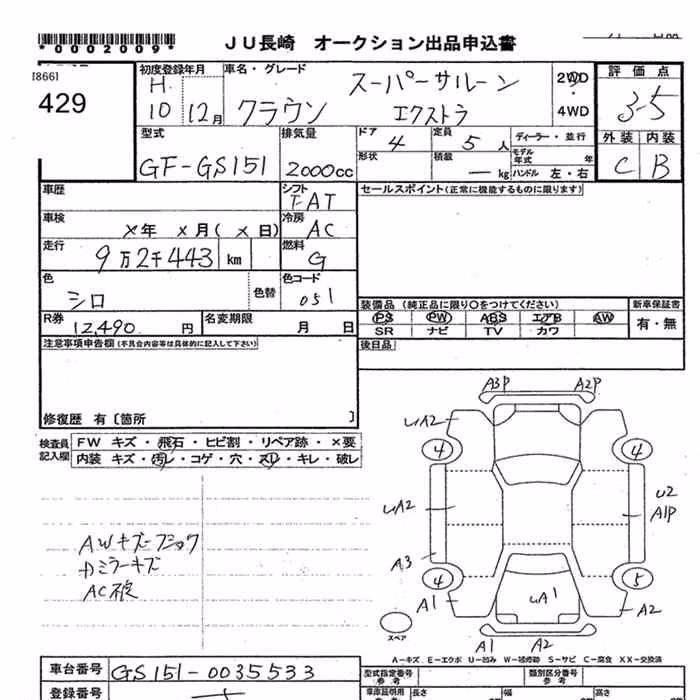 *0002009* JU長崎 オークション出品申込書
[866]
429
初度登録年月 車名・グレード 評価点
H.10 12月 クラウン スーパーサルーン エクストラ 2WD・4WD 3.5
型式 排気量 ドア 定員 ディーラー・並行 外装 内装
GF-GS151 2000cc 4 5人 モデル年式 年 C B
形状 積載 kg ハンドル 左・右
車歴 シフト セールスポイント(正常に機能するものに限ります)
FAT
車検 ×年 ×月(×日) 冷房 AC
走行 9万2千443 km 燃料 G
色 シロ 色替 色コード 051
装備品(純正品に限り○をつけてください) 新車保証書
R券 12,490円 名変期限 月 日 PS PW ABS エアB AW 有・無
SR ナビ TV カワ
注意事項申告欄(不具合内容等は具体的に記入して下さい) 後日品
修復歴 有〔箇所 〕
検査員記入欄 FW キズ・飛石・ヒビ割・リペア跡・×要
内装 キズ・汚レ・コゲ・穴・スレ・キレ・破レ
AWキズ
ミラーキズ
AC
A3P A2P
UA2
4 4
UA2 U2
A1P
A3
4 5
A1 UA1 A2
スペア
A1 A2
A-キズ E-エクボ U-凹み W-補修跡 S-サビ C-腐食 XX-交換済
車台番号 GS151-0035533 型式指定番号 参考 類別区分番号 参考
登録番号 車庫証明用 参考 長さ 幅 高さ